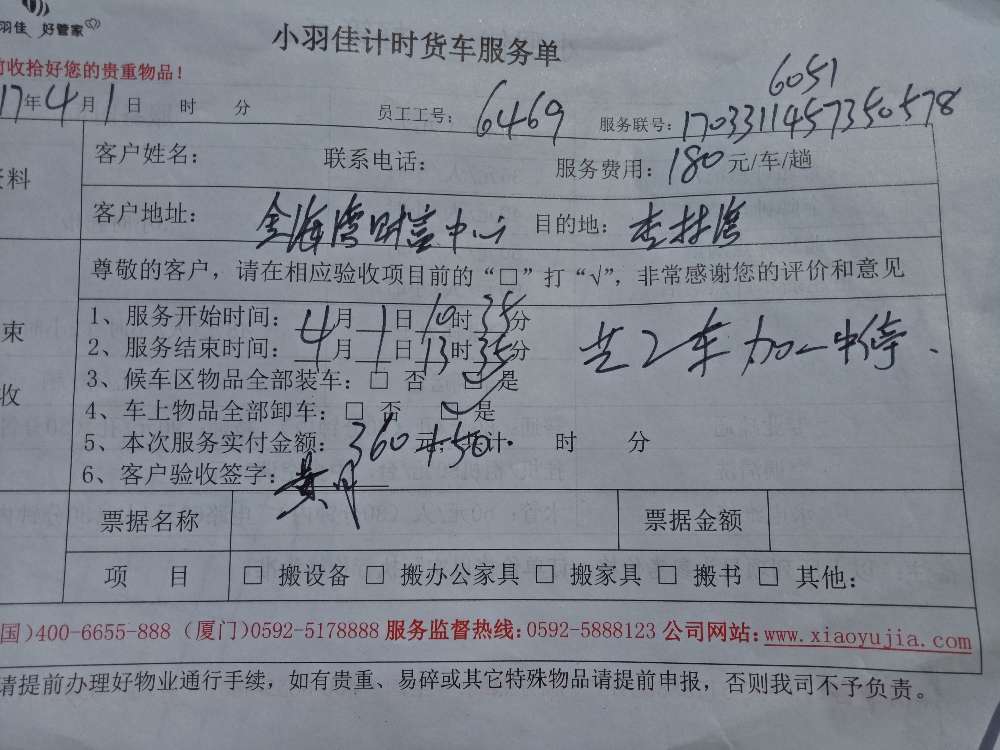 羽佳 好管家
小羽佳计时货车服务单
前收拾好您的贵重物品!
6051
17年4月1日 时 分 员工工号: 6469 服务联号: 1703311457350578
资料
客户姓名: 联系电话: 服务费用: 180元/车/趟
客户地址: 金海湾财富中心 目的地: 杏林湾
尊敬的客户，请在相应验收项目前的“□”打“√”，非常感谢您的评价和意见
束
收
1、服务开始时间: 4月1日10时35分
2、服务结束时间: 4月1日13时35分
共2车加一中停.
3、候车区物品全部装车: □ 否 ☑ 是
4、车上物品全部卸车: □ 否 ☑ 是
5、本次服务实付金额: 360元+50. 时 分
6、客户验收签字: 黄丹
票据名称 票据金额
项 目 □ 搬设备 □ 搬办公家具 □ 搬家具 □ 搬书 □ 其他:
国)400-6655-888 (厦门)0592-5178888 服务监督热线:0592-5888123 公司网站:www.xiaoyujia.com
请提前办理好物业通行手续，如有贵重、易碎或其它特殊物品请提前申报，否则我司不予负责。